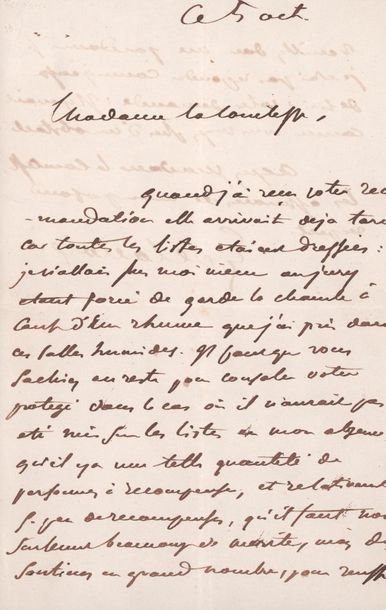 Ce 5 oct.
Madame la Comtesse,
quand j'ai reçu votre rec
-mandation elle arrivait deja tard
car toutes les listes etaient dressées :
je n'allais pas moi meme au jury
etant forcé de garder la chambre à
cause d'un rhume que j'ai pris dans
ces salles humides. Il faut que vous
sachiez au reste pour consoler votre
protégé dans le cas où il n'aurait pas
eté mis sur les listes en mon absence
qu'il y a une telle quantité de
personnes à recompenser, et relativement
si peu de recompenses, qu'il faut non
seulement beaucoup de merite, mais des
soutiens en grand nombre, pour